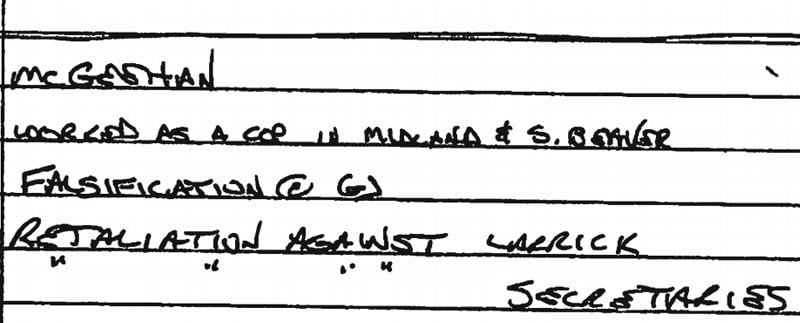 McGEEHAN
WORKED AS A COP IN MIDLAND & S. BEAVER
FALSIFICATION @ G)
RETALIATION AGAINST LARRICK
" " " " SECRETARIES